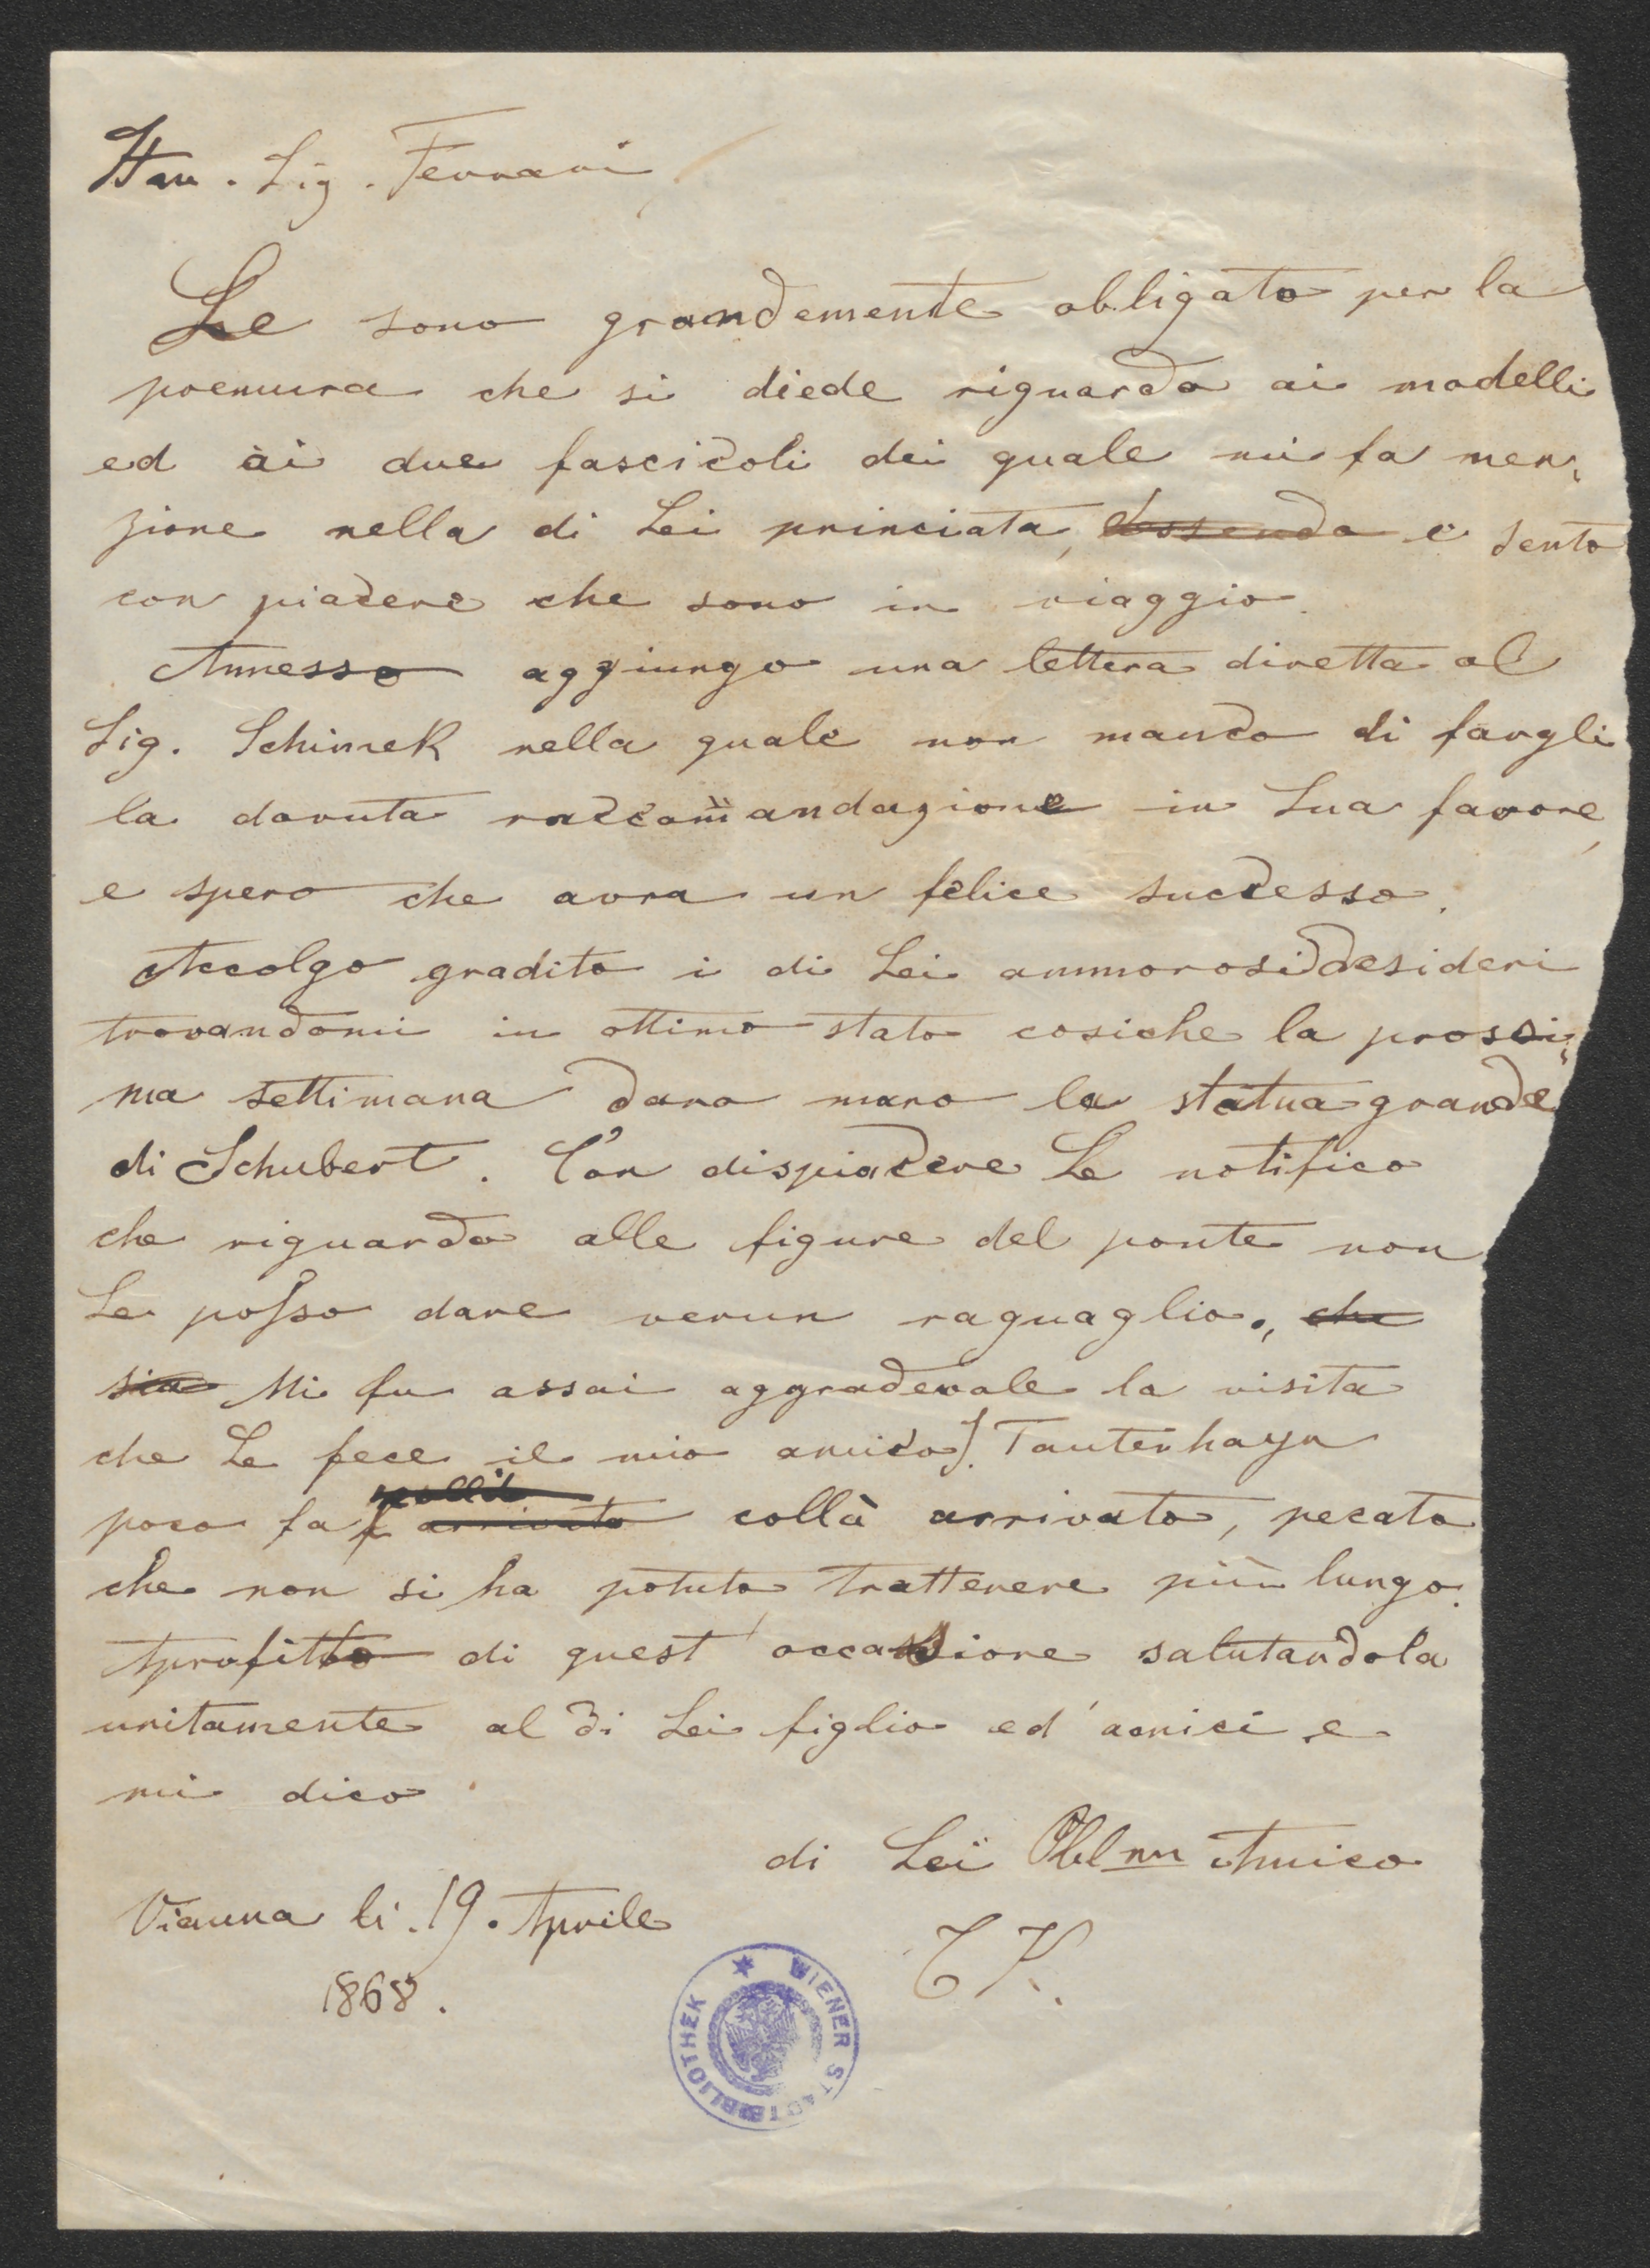 Stim. Sig. Ferrari
Le sono grandemente obligato per la
premura che si diede riguardo ai modelli
ed ài due fascicoli dei quale mi fa men,
zione nella di Lei princiata, essendo e sento
con piacere che sono in viaggio.
Annesso aggiungo una lettera diretta al
Sig. Schimek nella quale non manco di fargli
la dovuta raccom̄andazione in Sua favore,
e spero che avra un felice successo.
Accolgo gradito i di Lei ammorosi desideri
trovandomi in ottimo stato cosiche la prossi,
ma settimana daro mano la statua grande
di Schubert. Con dispiacere Le notifico
che riguardo alle figure del ponte non
Le posso dare verun raguaglio., che
sia Mi fu assai aggradevole la visita
che Le fece il mio amico J. Tautenhayn
poco fa arrivato collà arrivato, pecato
che non si ha potuto trattenere più lungo.
Aprofitto di quest' occasione salutandola
unitamente al di Lei figlio ed' amici e
mi dico
di Lei Obl mu Amico
Vienna li. 19. Aprile
1868.
C K.
WIENER STADTBIBLIOTHEK